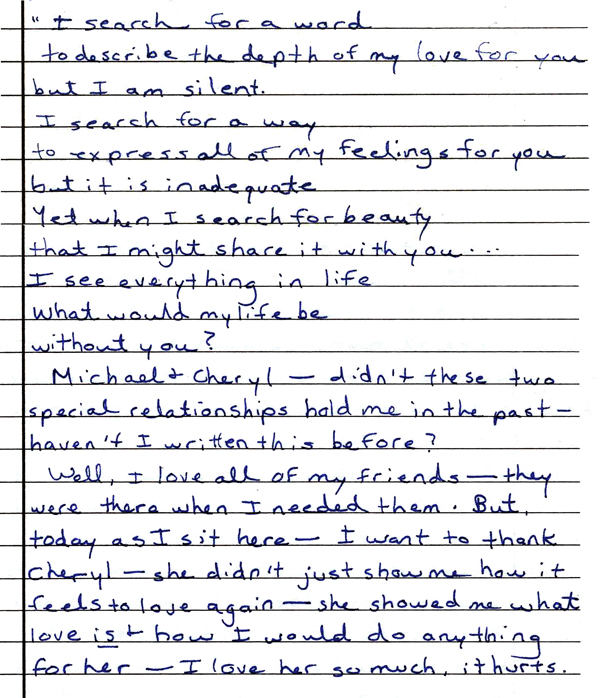 "I search for a word
to describe the depth of my love for you
but I am silent.
I search for a way
to express all of my feelings for you
but it is inadequate
Yet when I search for beauty
that I might share it with you...
I see everything in life
What would my life be
without you?
Michael & Cheryl — didn't these two
special relationships hold me in the past —
haven't I written this before?
Well, I love all of my friends — they
were there when I needed them. But,
today as I sit here — I want to thank
Cheryl — she didn't just show me how it
feels to love again — she showed me what
love is & how I would do anything
for her — I love her so much, it hurts.